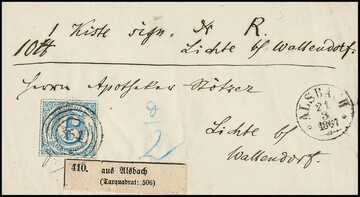 1 Kiste sign. N R.
10 ℔ Lichte b/ Wallendorf.
Herrn Apotheker Stötzer
Lichte b/
Wallendorf.
ALSBACH
21
3
1867
6
8
2
410. aus Alsbach
(Taxquadrat: 506)